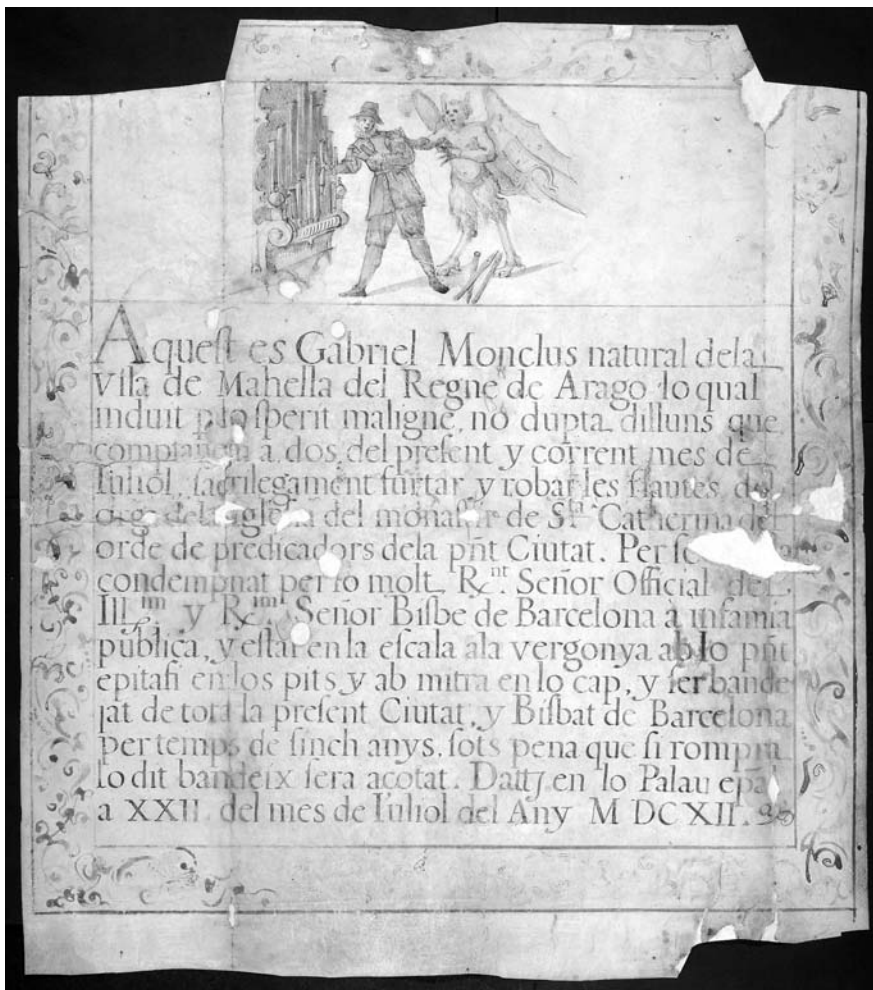 Aquest es Gabriel Monclus natural dela
Vila de Mahella del Regne de Arago lo qual
induit p lo sperit maligne, nó dupta dilluns que
comptauem a dos del present y corrent mes de
Iuliol, sacrilegament furtar y robar les flautes del
orgue dela iglesia del monastir de Sta Catherina del
orde de predicadors dela pñt Ciutat. Per
condempnat per lo molt Rnt. Señor Official del
Illm. y Rm. Señor Bisbe de Barcelona à infamia
publica, y estar en la escala ala vergonya ab lo pñt
epitafi en los pits y ab mitra en lo cap, y ser bande
jat de tota la present Ciutat, y Bisbat de Barcelona
per temps de sinch anys, sots pena que si rompra
lo dit bandeix sera açotat. Datt en lo Palau epal
a XXII del mes de Iuliol del Any M DC XII.